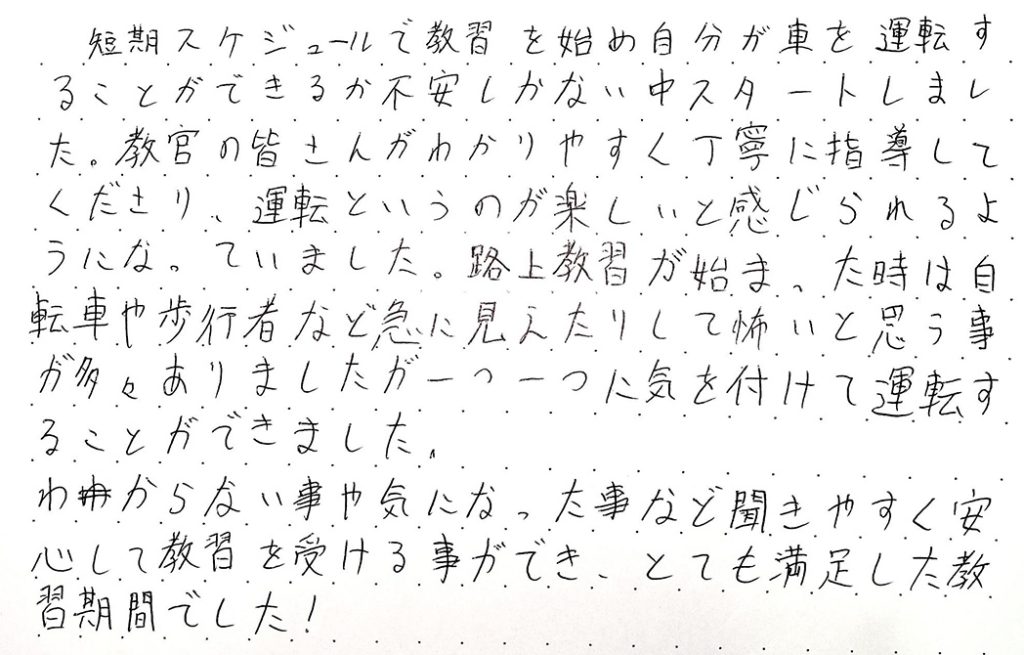 短期スケジュールで教習を始め自分が車を運転す
ることができるか不安しかない中スタートしまし
た。教官の皆さんがわかりやすく丁寧に指導して
くださり、運転というのが楽しいと感じられるよ
うになっていました。路上教習が始まった時は自
転車や歩行者など急に見えたりして怖いと思う事
が多々ありましたが一つ一つに気を付けて運転す
ることができました。
わからない事や気になった事など聞きやすく安
心して教習を受ける事ができ、とても満足した教
習期間でした！